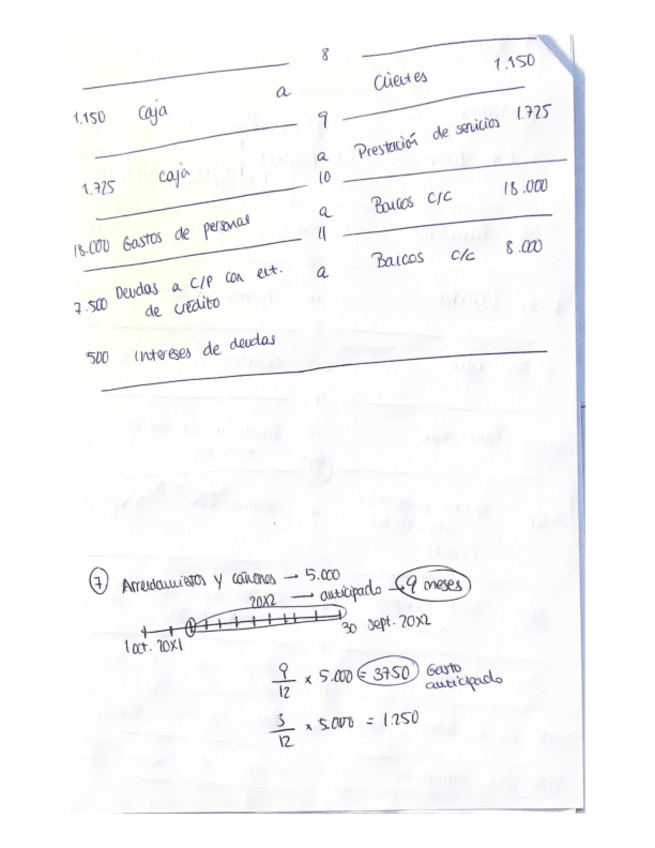 8
1.150 Caja a Clientes 1.150
9
1.725 caja a Prestación de servicios 1.725
10
18.000 Gastos de personal a Bancos c/c 18.000
11
7.500 Deudas a C/P con ent. a Bancos c/c 8.000
de crédito
500 intereses de deudas
7 Arrendamientos y cánones → 5.000
20X2 → anticipado → 9 meses
1 oct. 20X1 30 sept. 20X2
9/12 x 5.000 = 3750 Gasto
anticipado
3/12 x 5.000 = 1.250